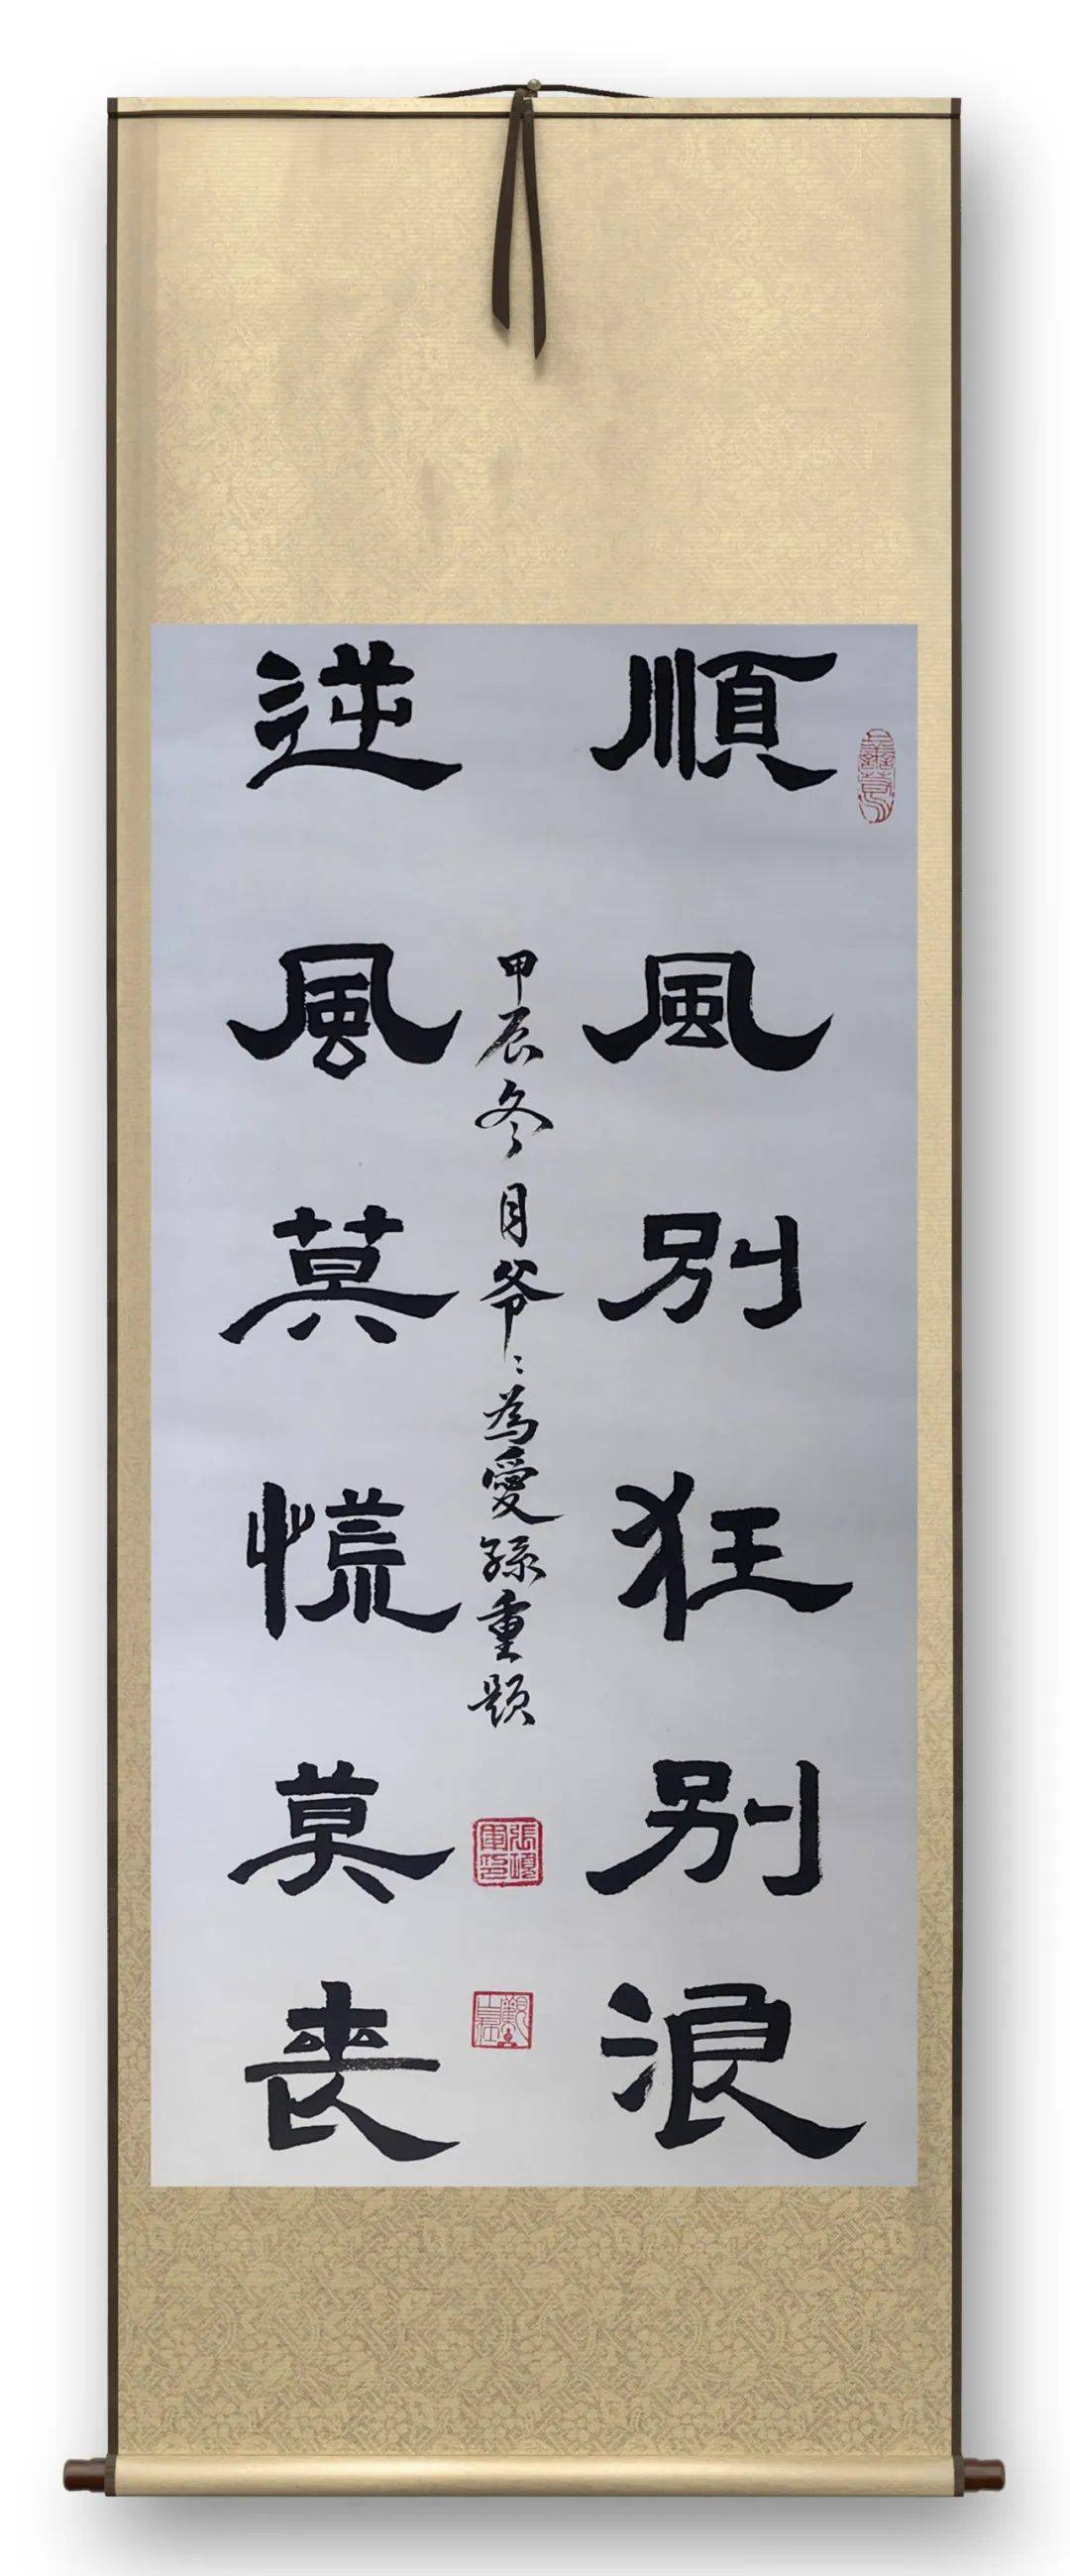 順風別狂别浪
甲辰冬月爷〻為愛孫重题
逆風莫慌莫丧